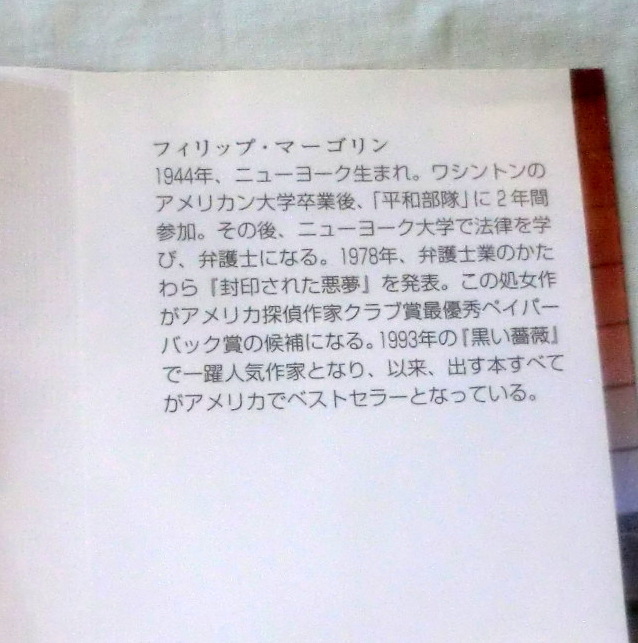 フィリップ・マーゴリン
1944年、ニューヨーク生まれ。ワシントンの
アメリカン大学卒業後、「平和部隊」に2年間
参加。その後、ニューヨーク大学で法律を学
び、弁護士になる。1978年、弁護士業のかた
わら『封印された悪夢』を発表。この処女作
がアメリカ探偵作家クラブ賞最優秀ペイパー
バック賞の候補になる。1993年の『黒い薔薇』
で一躍人気作家となり、以来、出す本すべて
がアメリカでベストセラーとなっている。